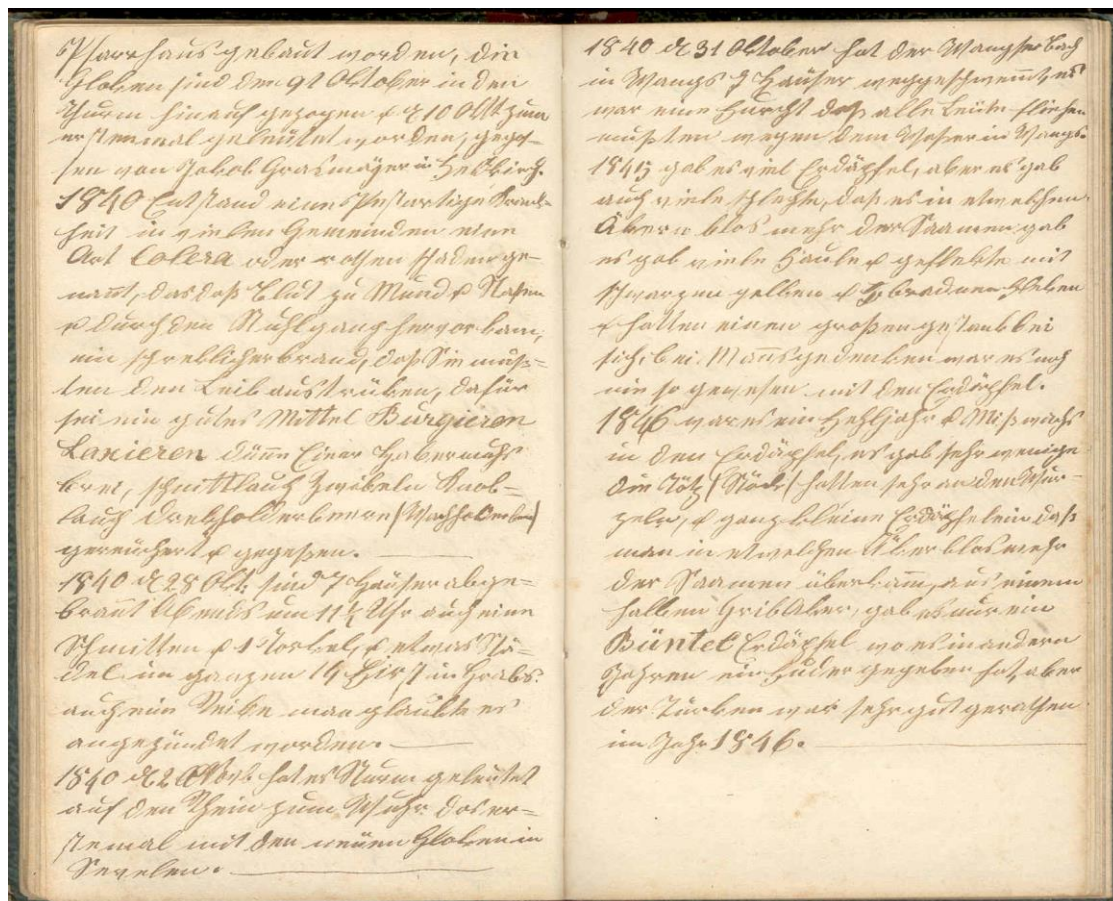 Pfarrhaus gebaut worden, die
Gloken sind den 9t Oktober in den
Thurm hinauf gezogen & d 10 Okt zum
erstenmal geleutet worden, gegos-
sen von Jakob Grasmayer in Feldkirch.
1840 Entstand eine Pestartige Krank-
heit in vielen Gemeinden eine
Art Colera oder rothen Schaden ge-
nannt, das daß Blut zu Mund & Nasen
& durch den Stuhlgang hervor kam,
ein schreklicher brand, daß Sie mus-
ten den Leib
sei ein gutes Mittel Burgieren
Laxieren dünn Einer Habermuhs
brei, schnittlauch Zwibeln Knob-
lauch drekholderbeere (Wachholderbeer)
gereuchert & gegeßen.
1840 d 28 Okt: sind 7 Häuser abge-
brant Abends um 11½ Uhr auch eine
Schmitten & 1 Torkel, & etwas Stä-
del im ganzen 14 First in Grabs.
auch ein man glaubte es
angezündet worden.
1840 d 2 Novb. hat es Sturm geleutet
auf den Rhein zum Wuhr das er-
stemal mit den neuen Gloken in
Sevelen.
1840 d 31 Oktober hat der Wangser Bach
in Wangs 7 Häuser weggeschwemt, es
war eine Furcht daß alle Leute fliehen
mußten wegen dem Waser in Wangs.
1845 gab es viel Erdäpfel, aber es gab
auch viele schlechte, daß es in etwelchen
Äkern blos mehr der Saamen gab
es gab viele Faule & geflekte mit
schwarzen gelben & Fleken
& hatten einen großen gestank bei
sich, bei Mannsgedenken war es noch
nie so gewesen mit den Erdäpfel.
1846 war es ein Fehljahr & Mißwachs
in den Erdäpfel, es gab sehr wenige
die Stötz (Stöcke) hatten sehr an den Wur-
zeln, & ganz kleine Erdäpfelein daß
man in etwelchen Äker blos mehr
der Saamen überkam, aus einem
halben Aker, gab es nur ein
Büntel Erdäpfel wo es in andern
Jahren ein Fuder gegeben hat, aber
der Türken war sehr gut gerathen
im Jahr 1846.